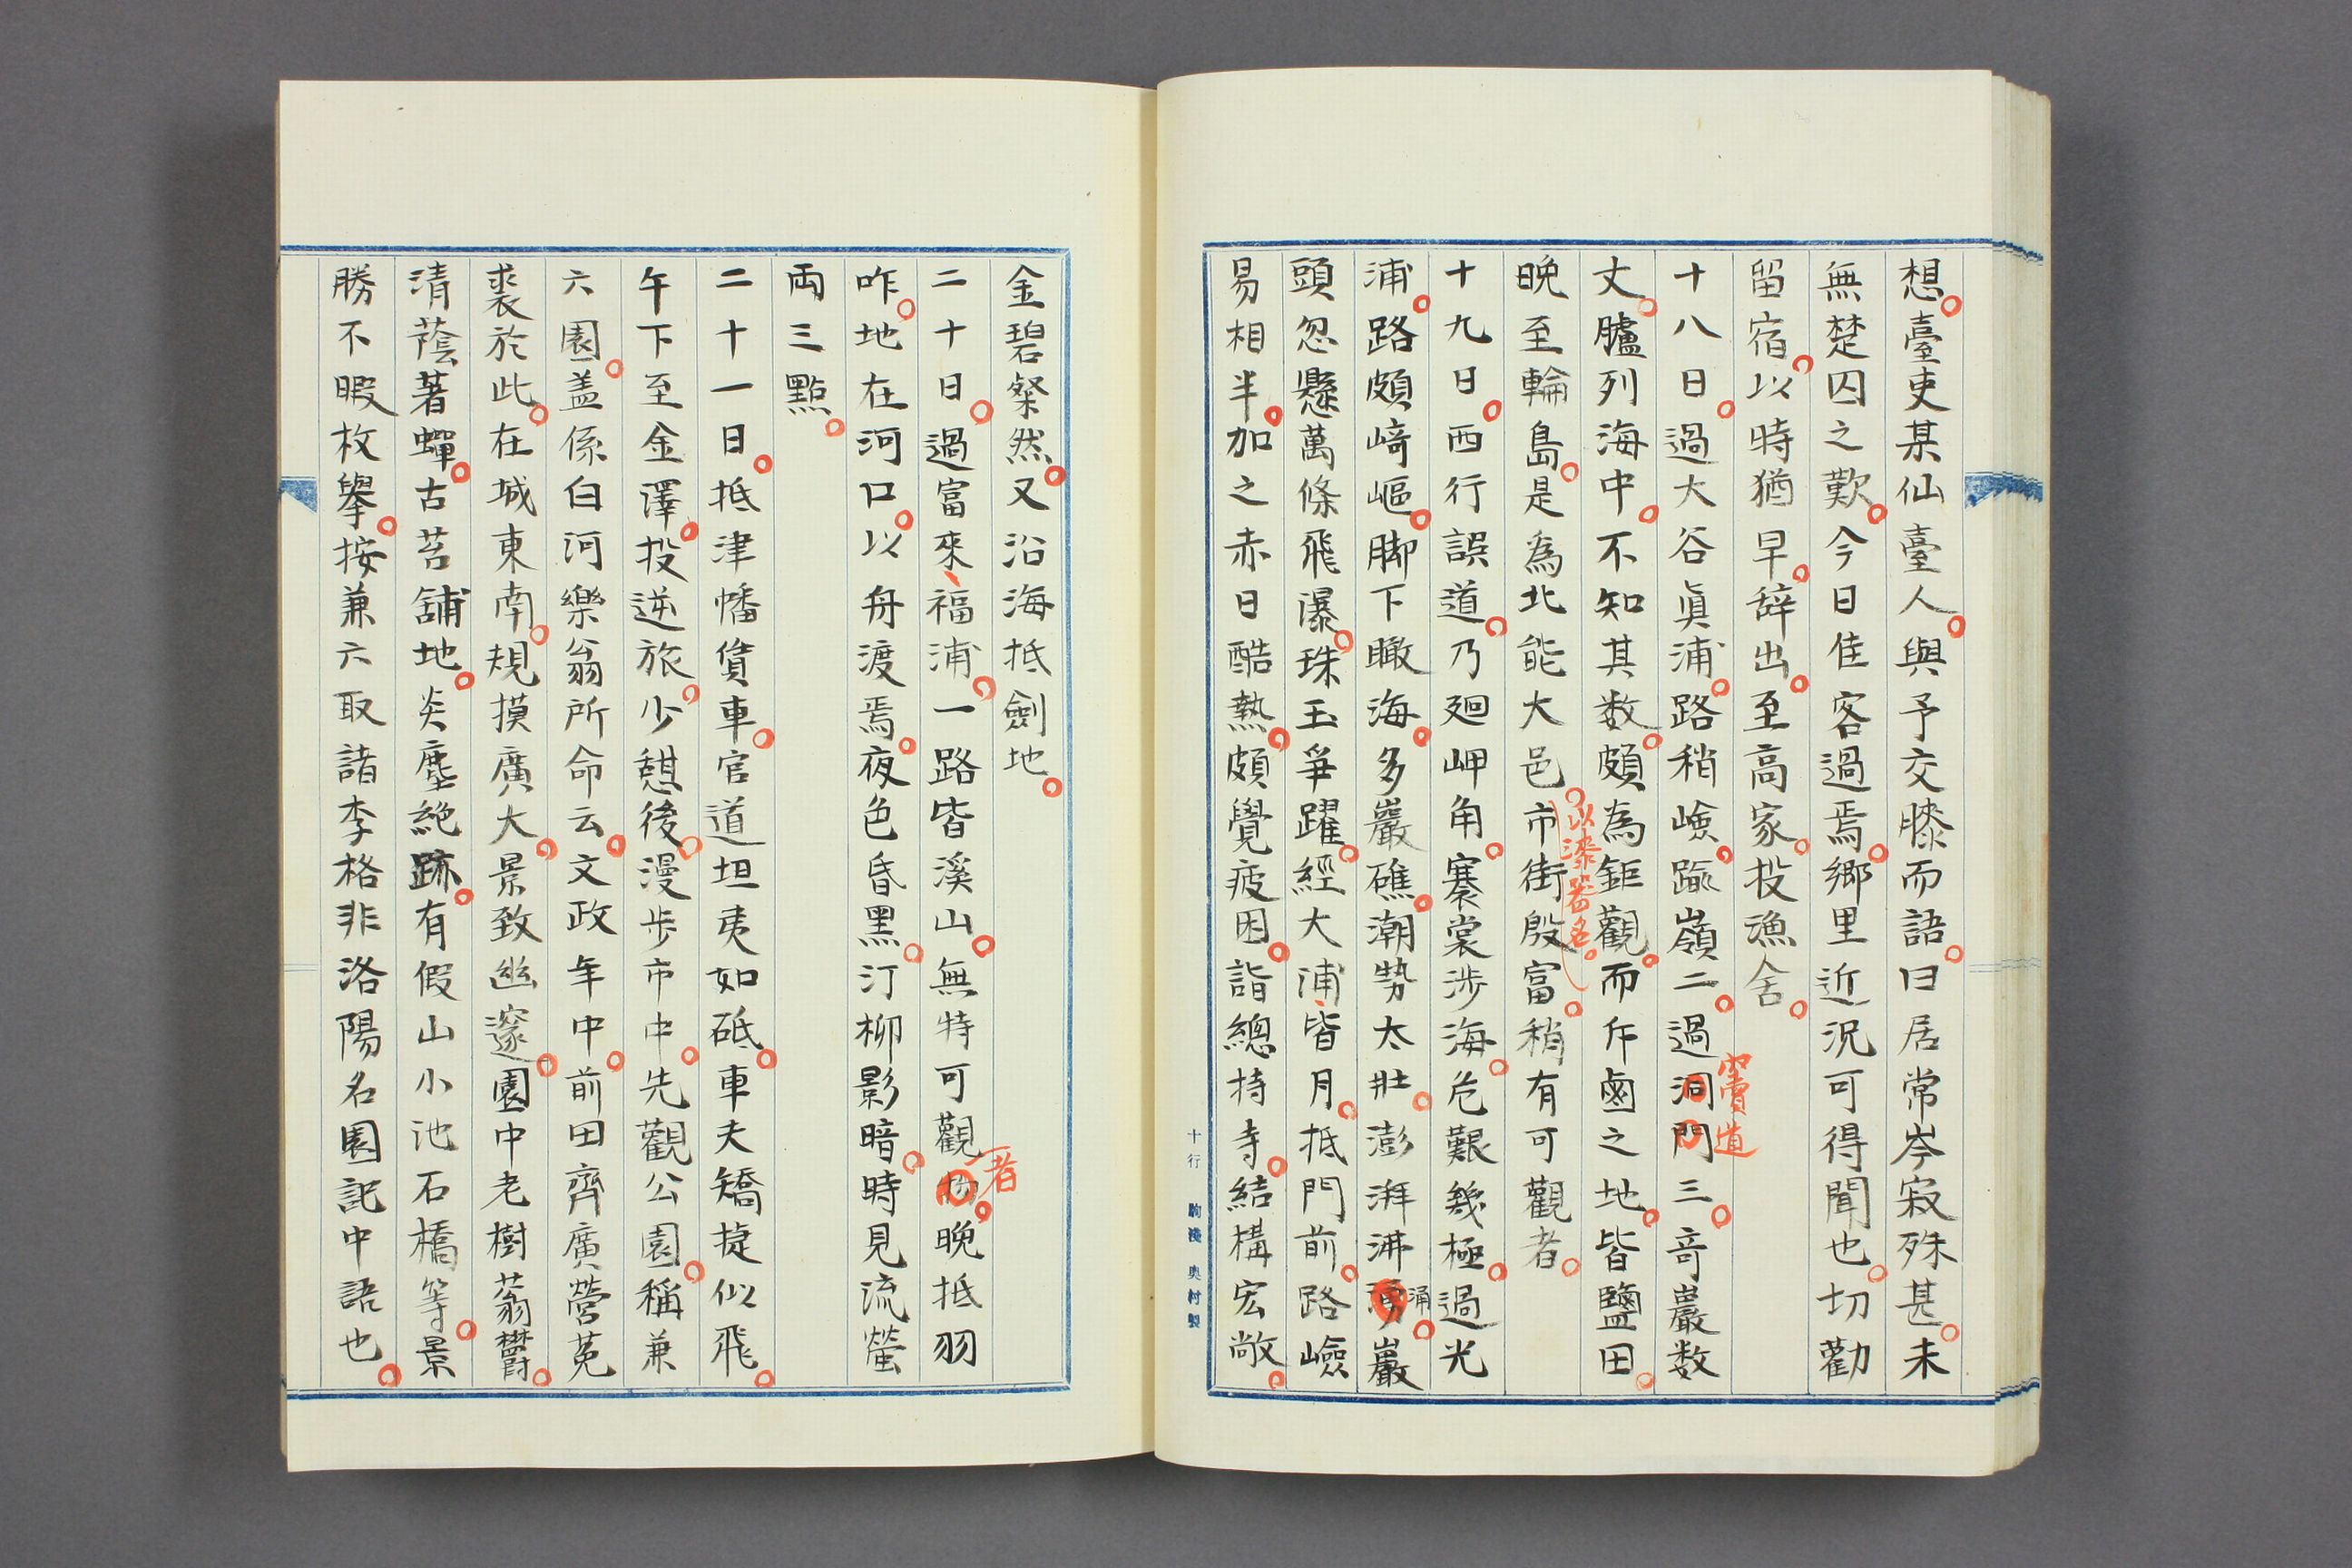 想。臺吏某仙臺人。與予交膝而語。曰居常岑寂殊甚。未
無楚囚之歎。今日佳客過焉。鄉里近況可得聞也。切勸
留宿。以時猶早。辞出。至高家。投漁舍。
十八日。過大谷眞浦。路稍嶮。踰嶺二。過洞門三。竒巖数
竇道
丈。臚列海中。不知其数。頗為鉅觀。而斥鹵之地。皆鹽田。
晩至輪島。是為北能大邑。市街殷富。稍有可觀者。
以漆器名。
十九日。西行誤道。乃廻岬角。褰裳涉海。危艱幾極。過光
浦。路頗﨑嶇。脚下瞰海。多巖礁。潮勢太壯。澎湃沸湧。巖
涌
頭忽懸萬條飛瀑。珠玉爭躍。經大浦、皆月。抵門前。路嶮
易相半。加之赤日酷熱。頗覺疲困。詣總持寺。結構宏敞。
十行 駒淺 奥村製
金碧粲然。又沿海抵劍地。
二十日。過富來、福浦。一路皆溪山。無特可觀物。晩抵羽
者
咋。地在河口。以舟渡焉。夜色昏黑。汀柳影暗。時見流螢
兩三點。
二十一日。抵津幡貨車。官道坦夷如砥。車夫矯捷似飛。
午下至金澤。投逆旅。少憩後。漫步市中。先觀公園。稱兼
六園。盖係白河樂翁所命云。文政年中。前田齊廣營菟
裘於此。在城東南。規摸廣大。景致幽邃。園中老樹蓊欝。
清蔭著蟬。古苔舖地。炎塵絶跡。有假山小池石橋等。景
勝不暇枚擧。按兼六取諸李格非洛陽名園記中語也。